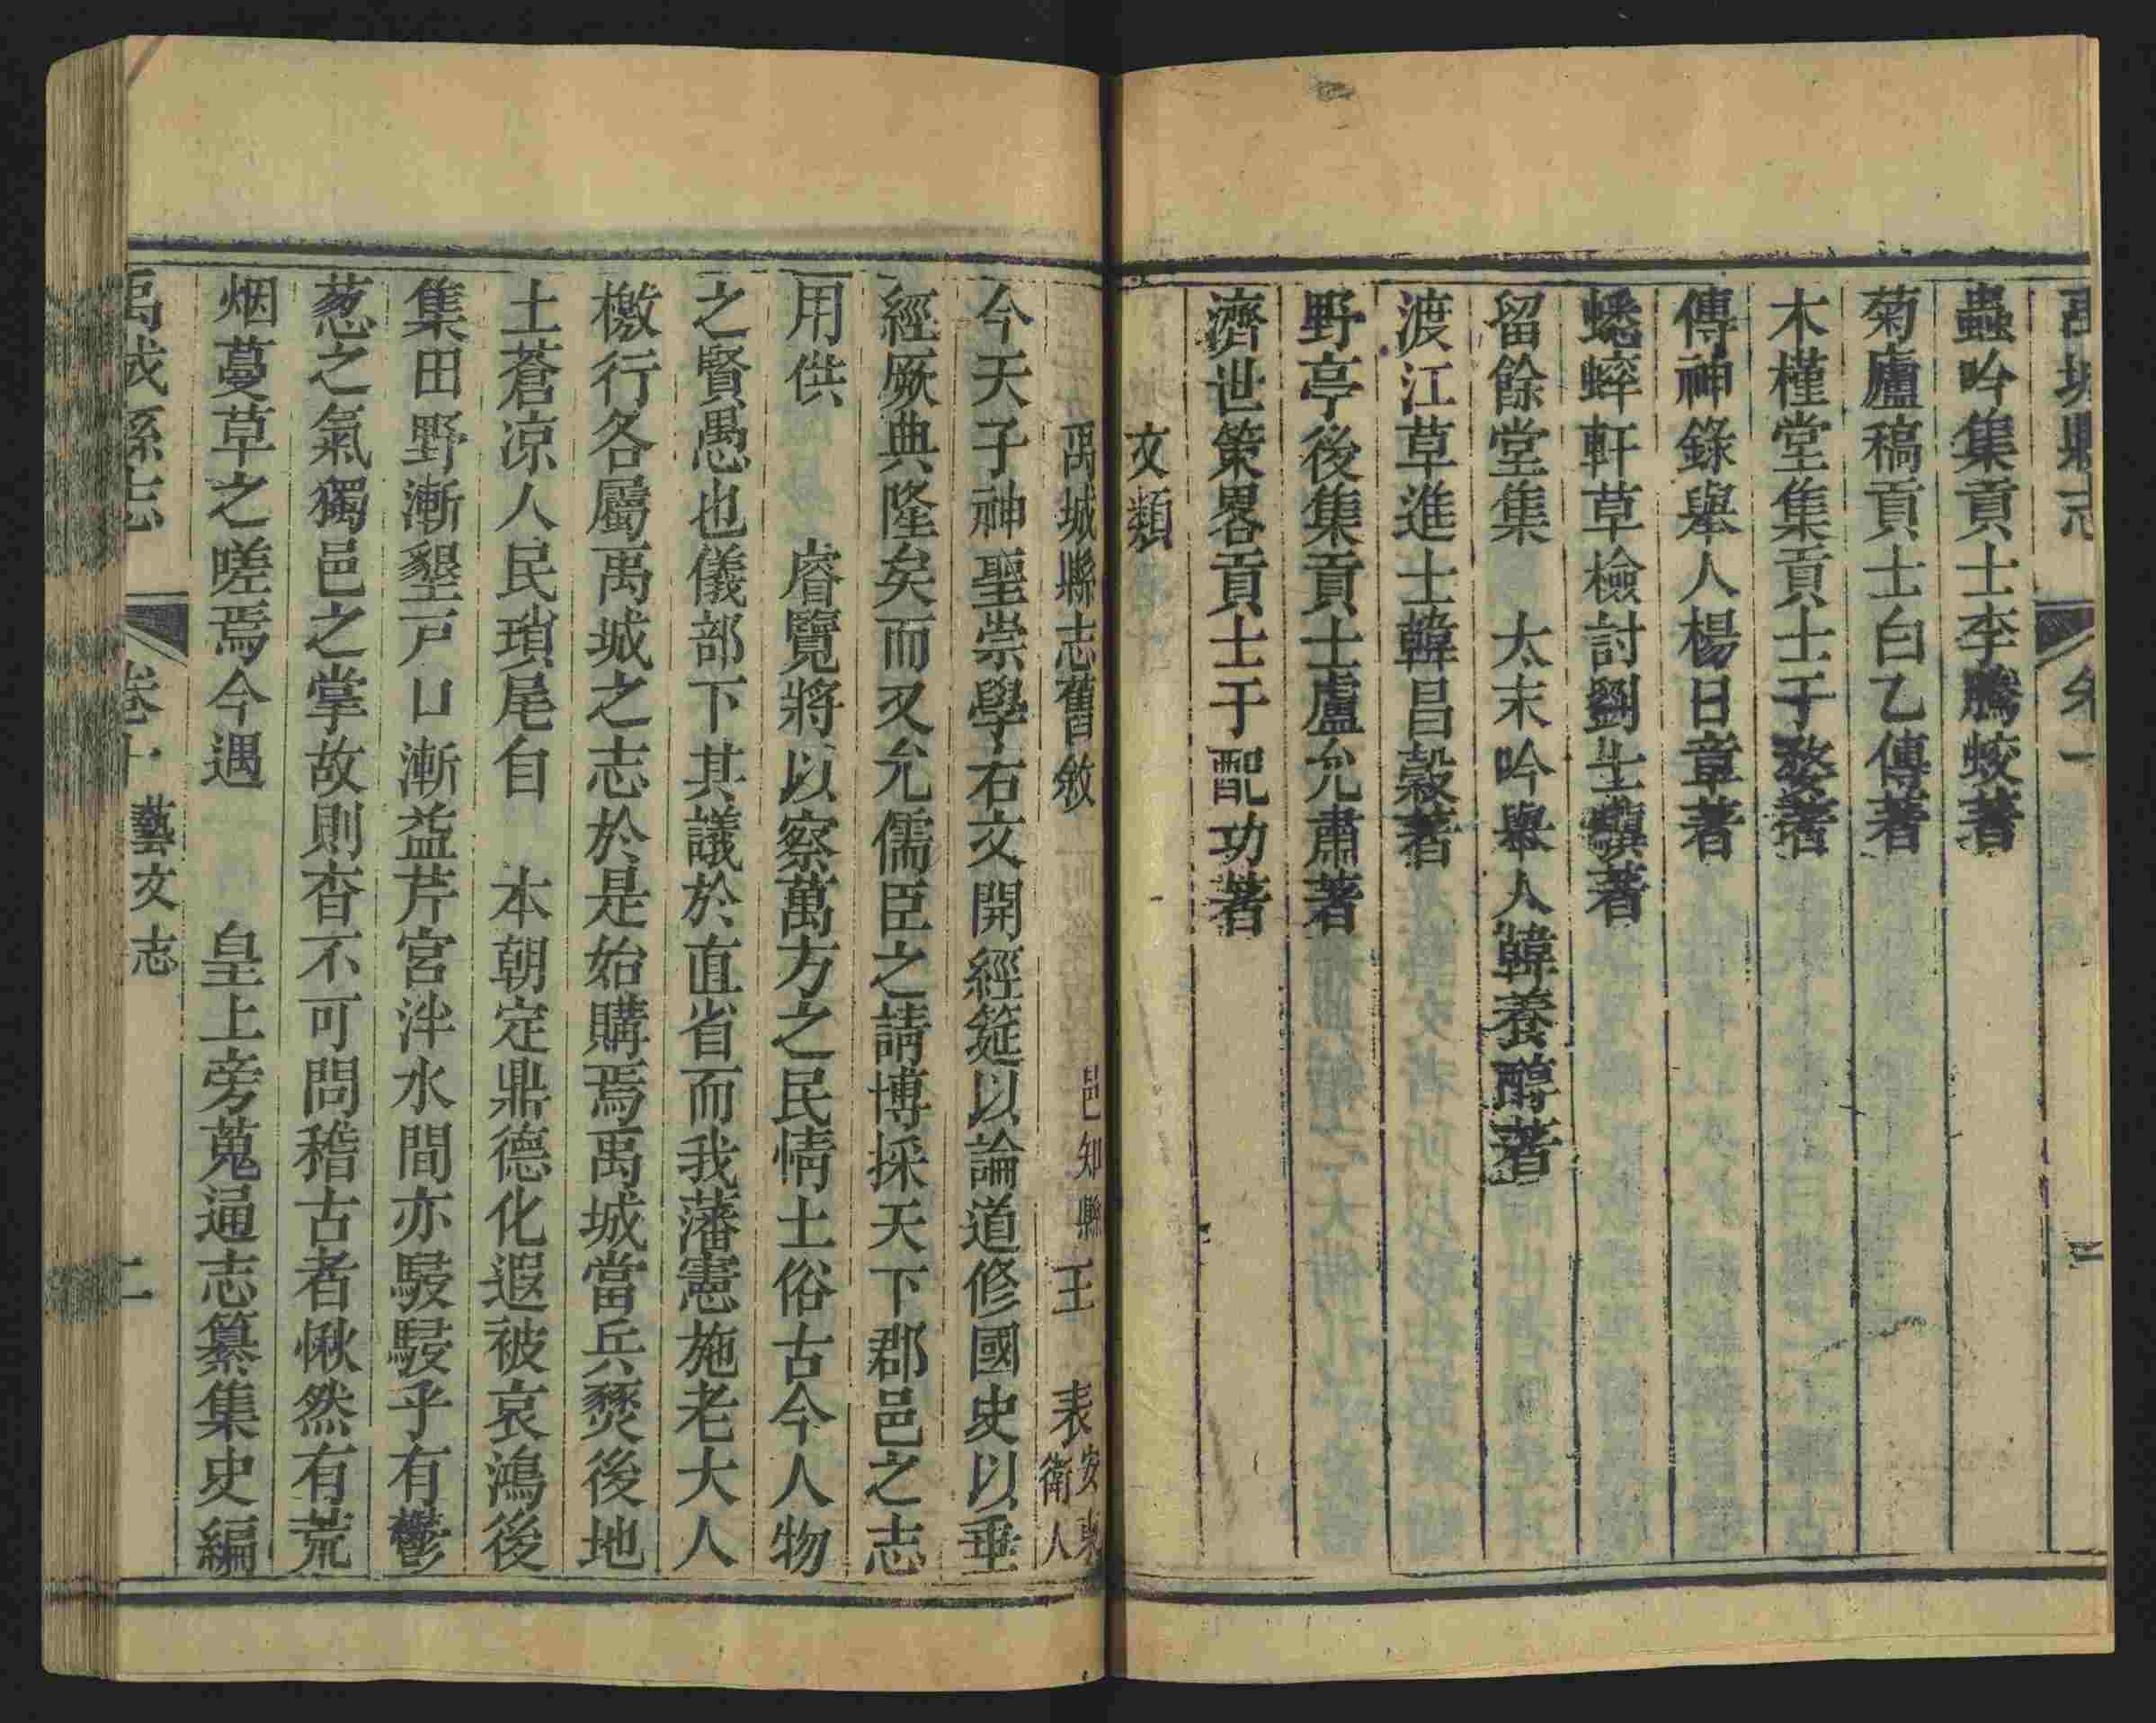 禹城縣志
蟲吟集貢士李騰蛟著
菊廬稿貢士白乙傳著
木槿堂集貢士于婺著
傳神錄舉人楊日章著
蟋蟀軒草檢討劉生驥著
留餘堂集 太末吟舉人韓養醇著
渡江草進士韓昌穀著
野亭後集貢士盧允肅著
濟世策畧貢士于配功著
文類
禹城縣志舊敘 邑知縣 王表 安東衛人
今天子神聖崇學右文開經筵以論道修國史以垂
經厥典隆矣而又允儒臣之請博採天下郡邑之志
用供 睿覽將以察萬方之民情土俗古今人物
之賢愚也儀部下其議於直省而我藩憲施老大人
檄行各屬禹城之志於是始購焉禹城當兵燹後地
土蒼凉人民瑣尾自 本朝定鼎德化遐被哀鴻後
集田野漸墾戸口漸益芹宮泮水間亦駸駸乎有鬱
葱之氣獨邑之掌故則杳不可問稽古者愀然有荒
烟蔓草之嗟焉今遇 皇上旁蒐通志纂集史編
禹城縣志 卷十 藝文志 二